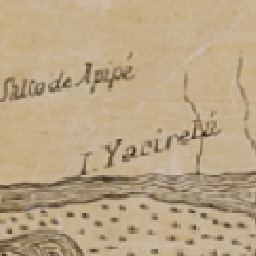 Salto de Apipé
I. Yaciretá